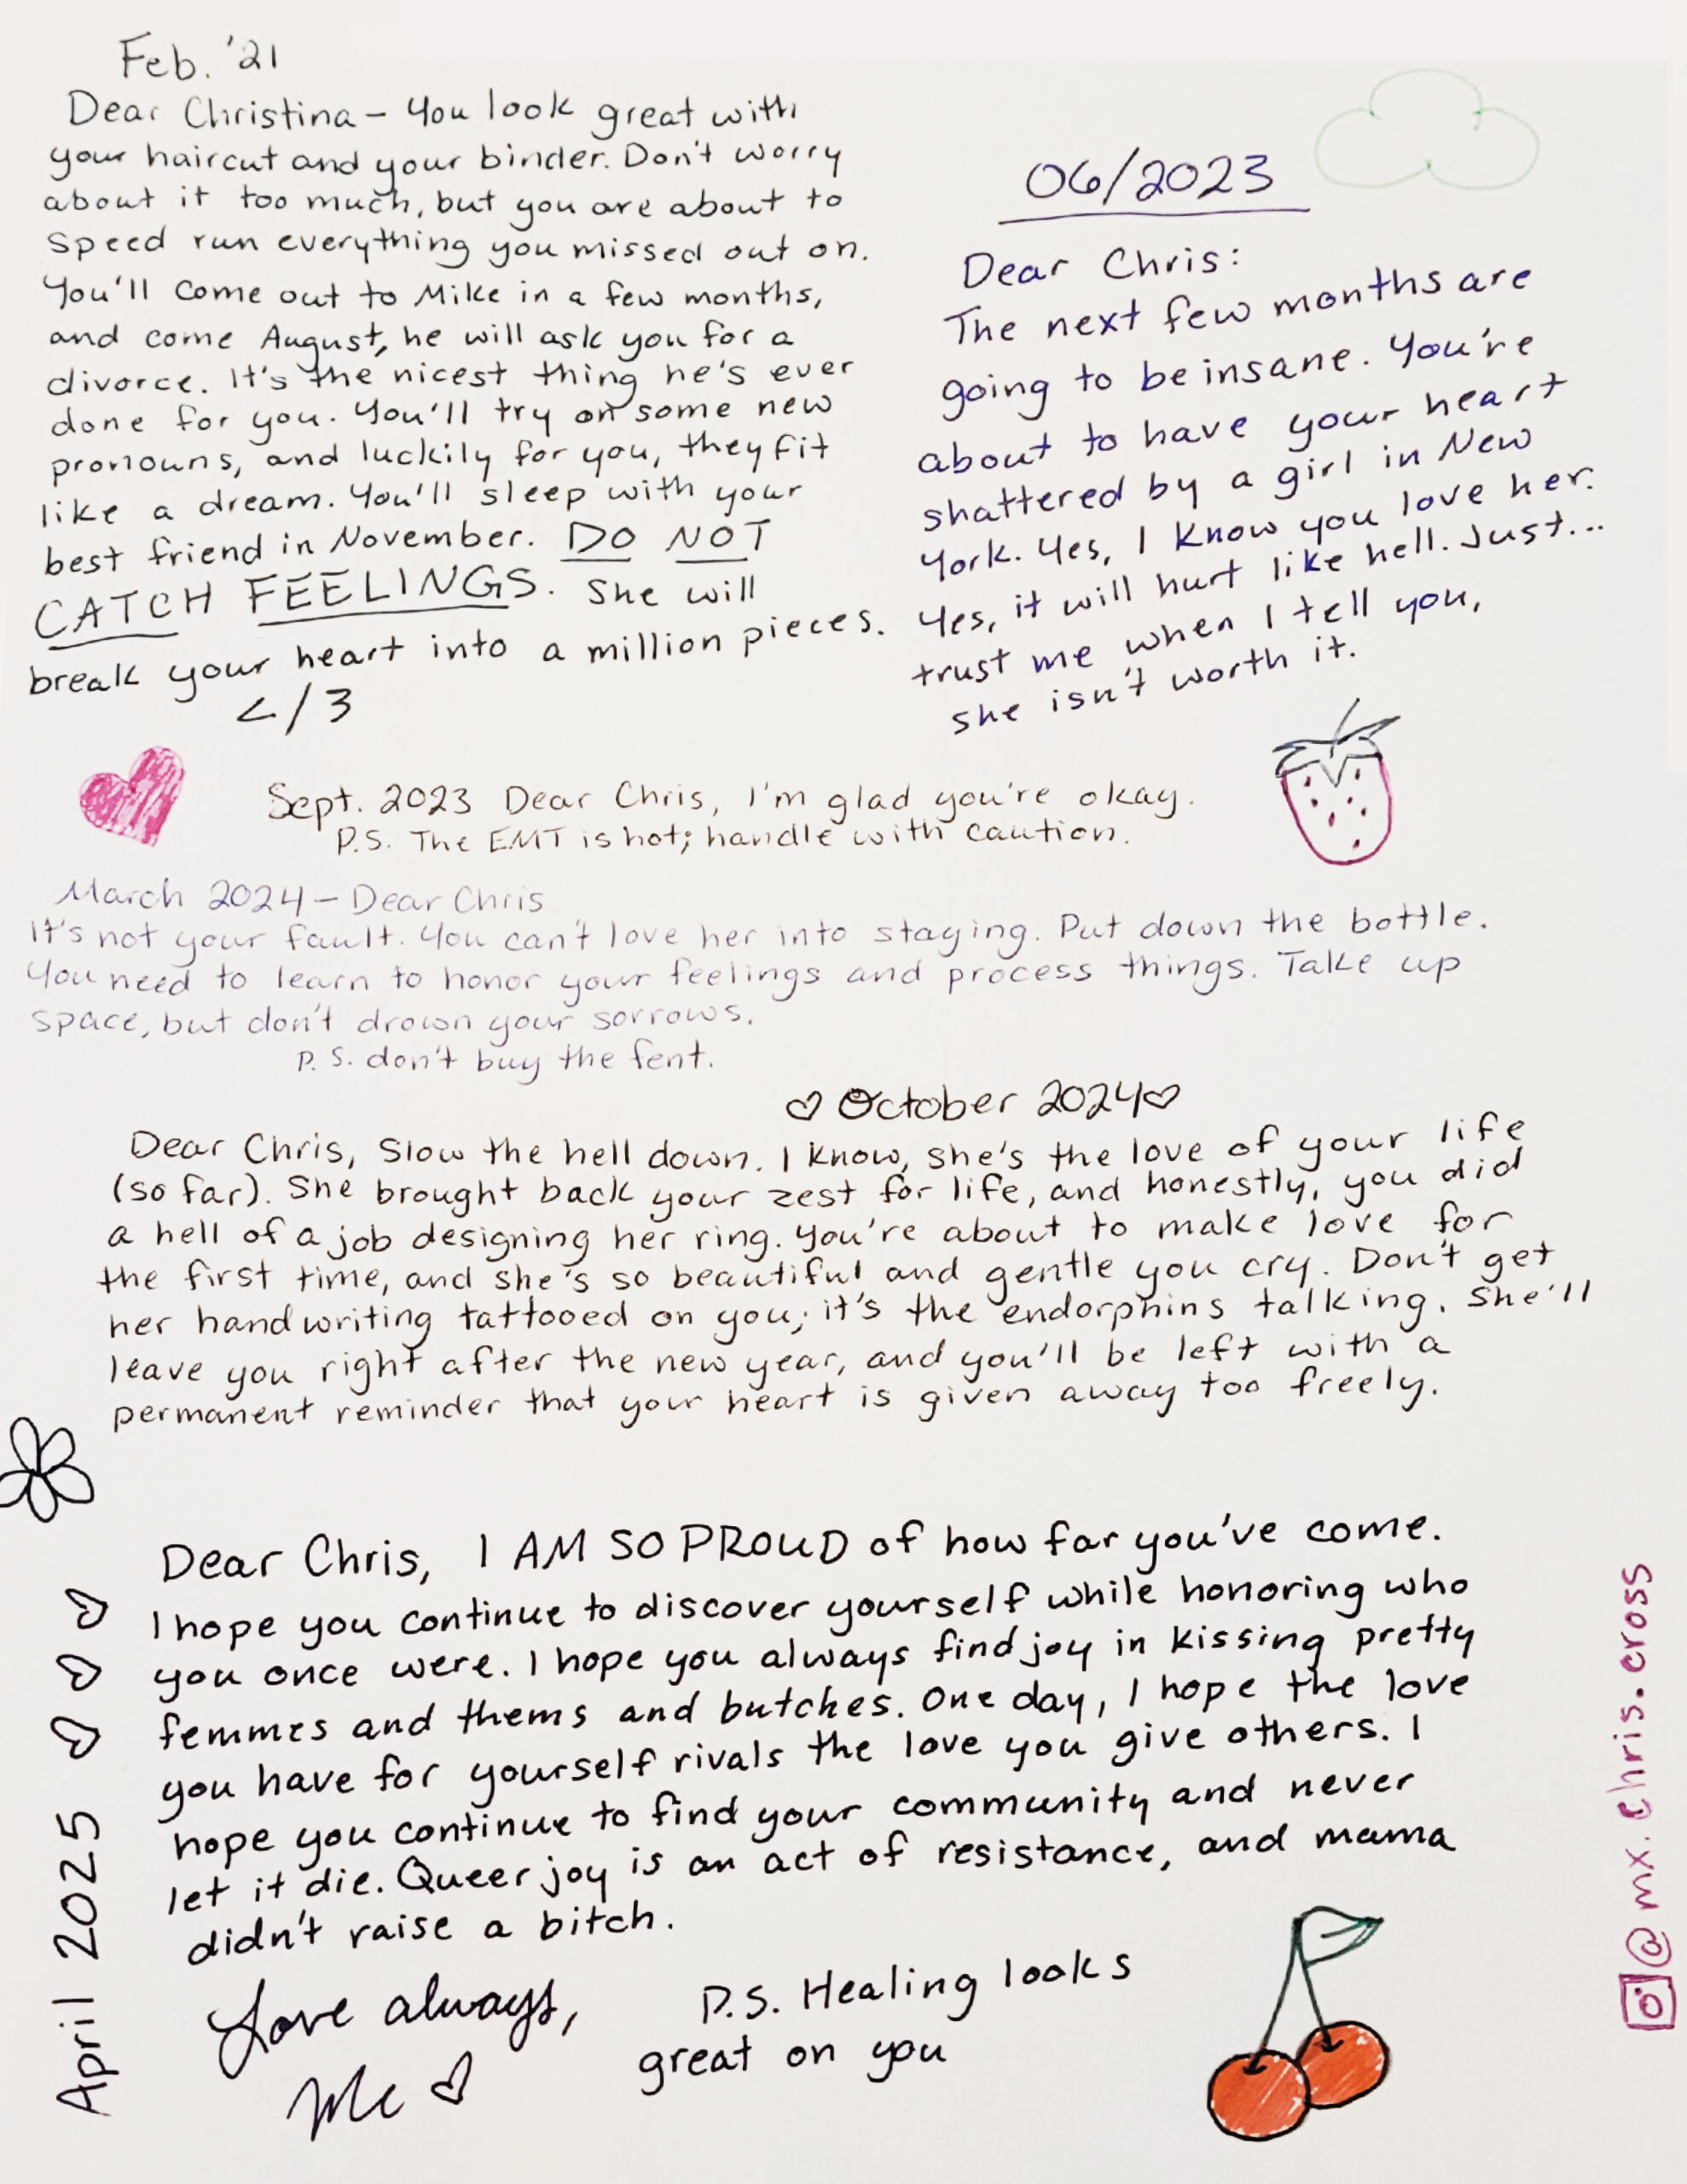 Feb. '21
Dear Christina – You look great with
your haircut and your binder. Don't worry
about it too much, but you are about to
speed run everything you missed out on.
You'll come out to Mike in a few months,
and come August, he will ask you for a
divorce. It's the nicest thing he's ever
done for you. You'll try on some new
pronouns, and luckily for you, they fit
like a dream. You'll sleep with your
best friend in November. DO NOT
CATCH FEELINGS. She will
break your heart into a million pieces.
</3
06/2023
Dear Chris:
The next few months are
going to be insane. You're
about to have your heart
shattered by a girl in New
York. Yes, I know you love her.
Yes, it will hurt like hell. Just...
trust me when I tell you,
she isn't worth it.
Sept. 2023 Dear Chris, I'm glad you're okay.
P.S. The EMT is hot; handle with caution.
March 2024 – Dear Chris
It's not your fault. You can't love her into staying. Put down the bottle.
You need to learn to honor your feelings and process things. Take up
space, but don't drown your sorrows.
P.S. don't buy the fent.
♡ October 2024 ♡
Dear Chris, Slow the hell down. I know, she's the love of your life
(so far). She brought back your zest for life, and honestly, you did
a hell of a job designing her ring. You're about to make love for
the first time, and she's so beautiful and gentle you cry. Don't get
her handwriting tattooed on you; it's the endorphins talking. She'll
leave you right after the new year, and you'll be left with a
permanent reminder that your heart is given away too freely.
April 2025 ♡ ♡ ♡
Dear Chris, I AM SO PROUD of how far you've come.
I hope you continue to discover yourself while honoring who
you once were. I hope you always find joy in kissing pretty
femmes and thems and butches. One day, I hope the love
you have for yourself rivals the love you give others. I
hope you continue to find your community and never
let it die. Queer joy is an act of resistance, and mama
didn't raise a bitch.
Love always,
Me ♡
P.S. Healing looks
great on you
@mx.chris.cross